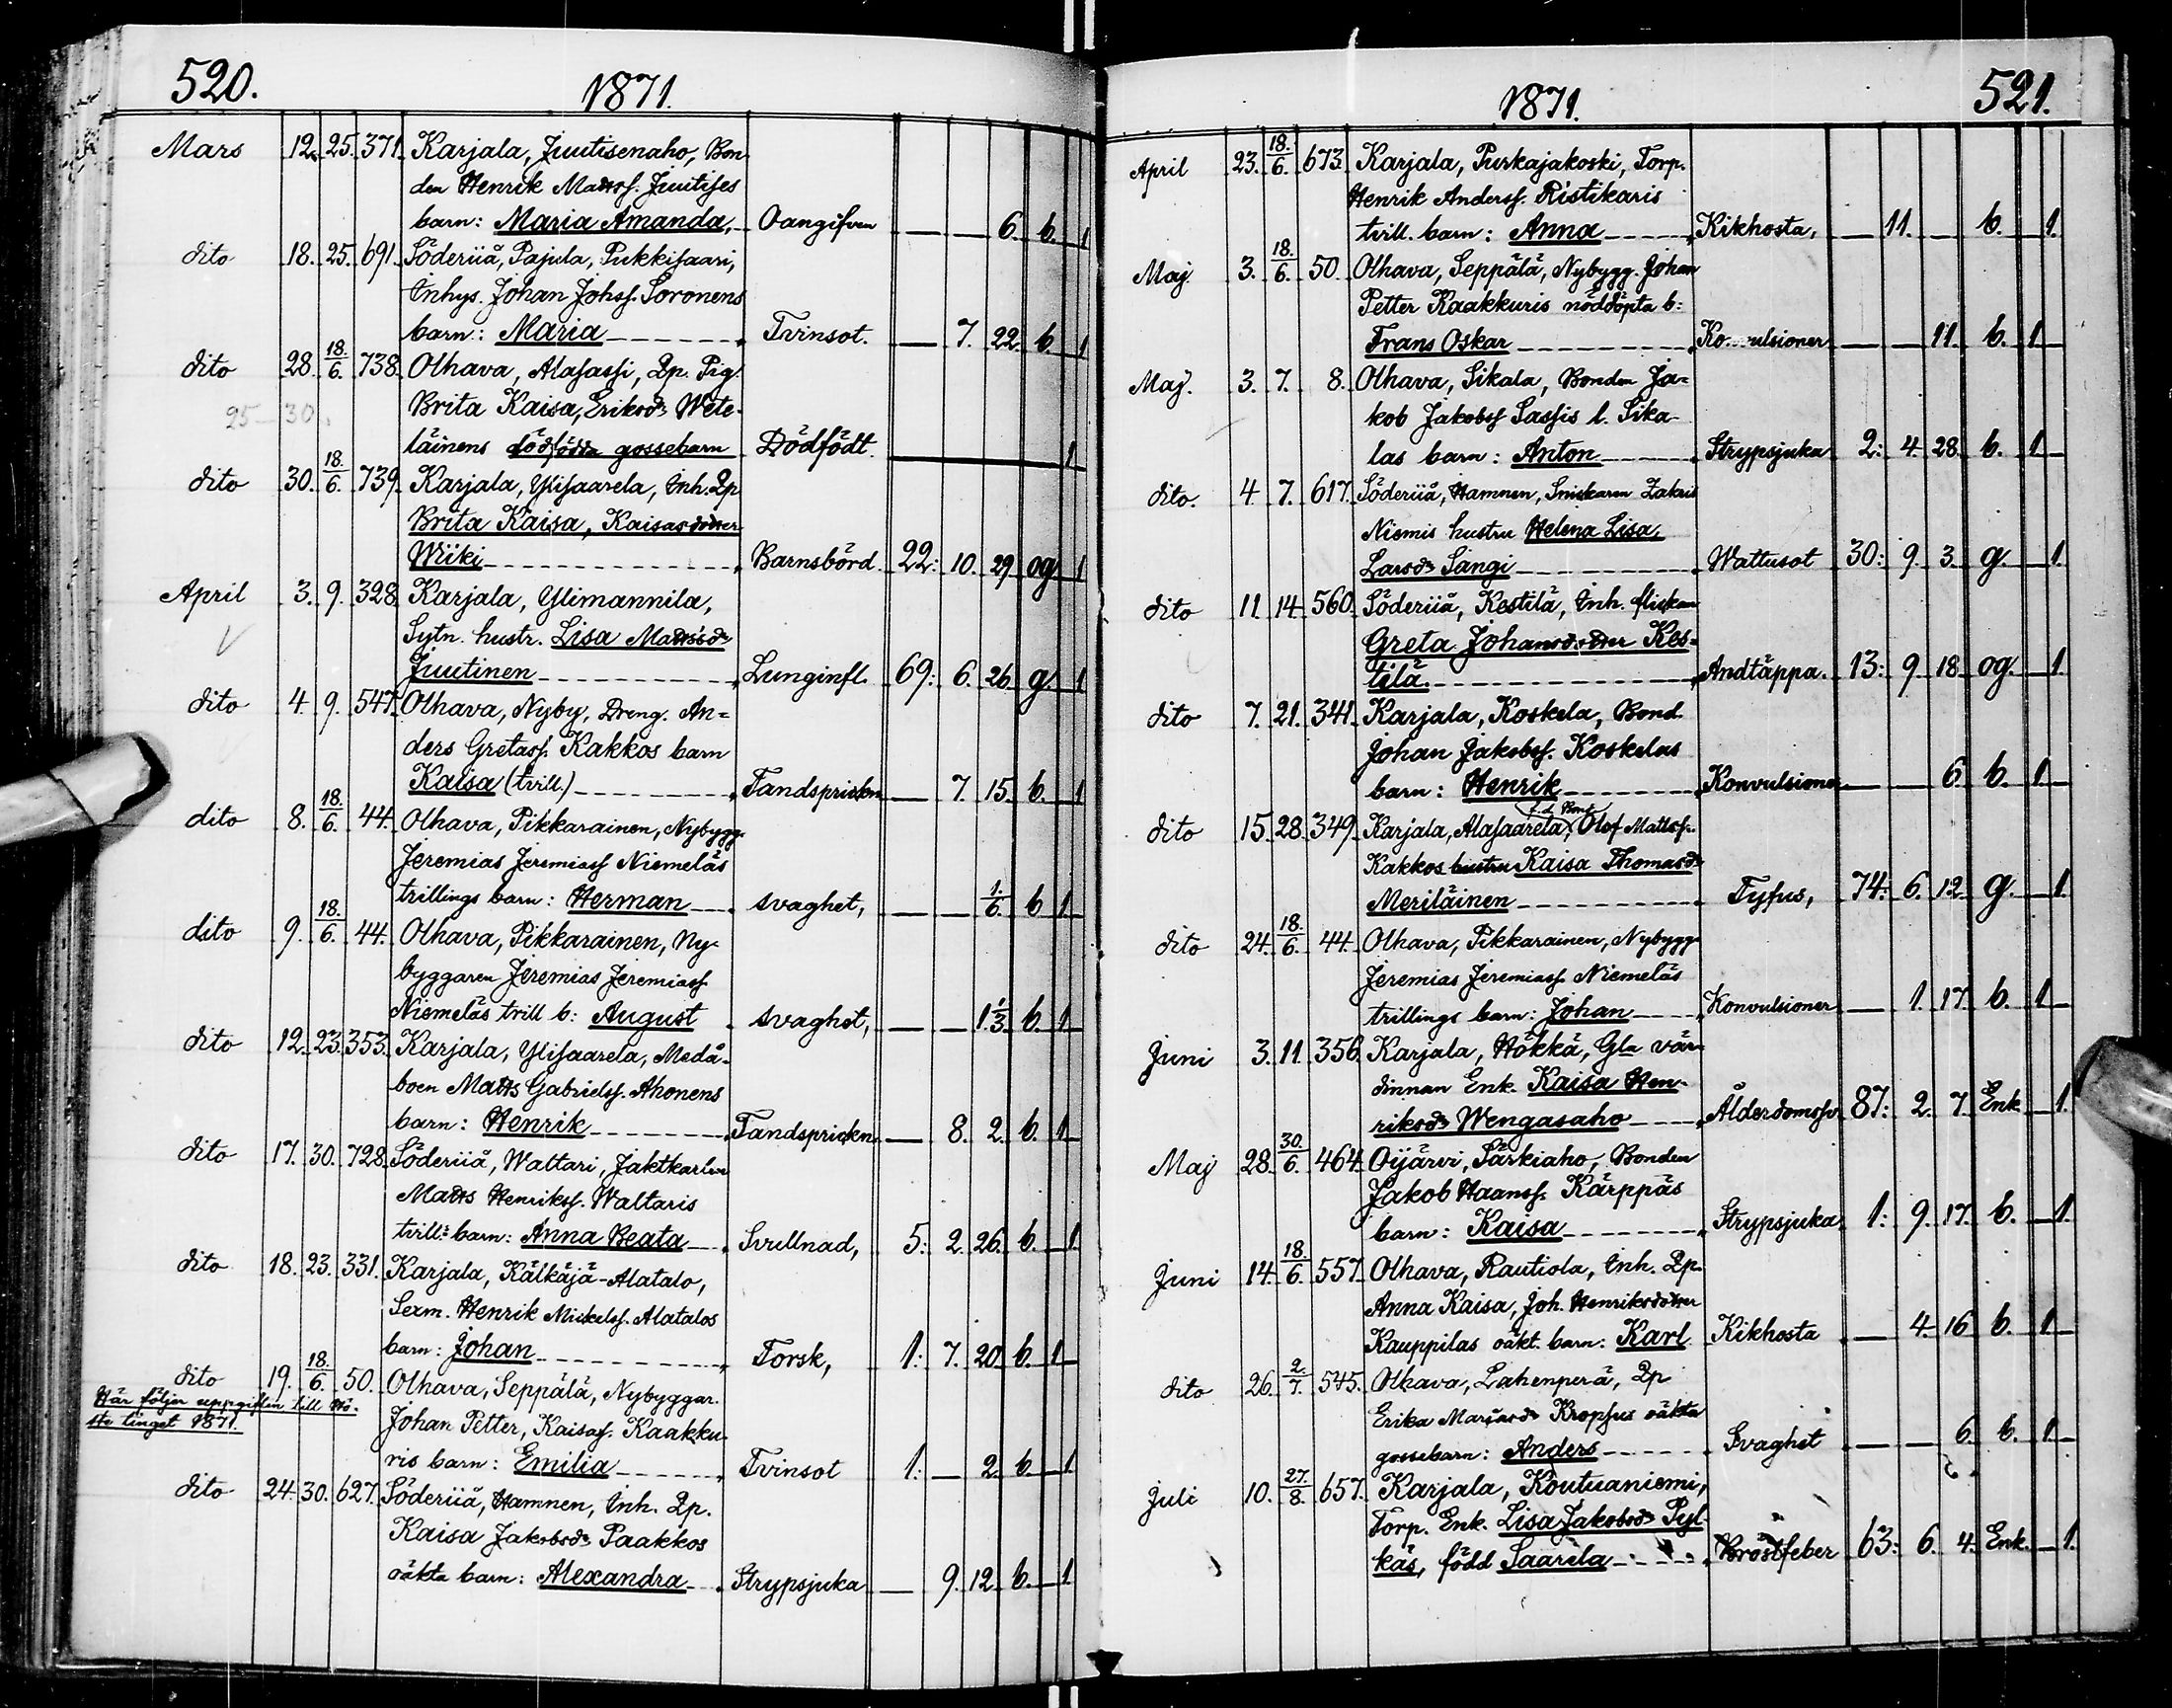 520. 1871.
Mars 12. 25. 371. Karjala, Juutisenaho, Bon-
den Henrik Mattss. Juutises
barn: Maria Amanda, Oangifven — — 6. b. 1
dito 18. 25. 691. Söderiiå, Pajula, Pukkisaari,
Inhys. Johan Johss. Soronens
barn: Maria Tvinsot. — 7. 22. b. 1
dito 28. 18./6. 738. Olhava, Alasassi, Lp. Pig.
25–30. Brita Kaisa, Eriksdr Wete-
läinens dödfödda gossebarn Dödfödt. 1
dito 30. 18./6. 739. Karjala, Ylisaarela, Inh. Lp
Brita Kaisa, Kaisasdotter
Wiiki Barnsbörd. 22: 10. 29 og. 1
April 3. 9. 328. Karjala, Ylimannila,
Sytn. hustr. Lisa Mattsdr
Juutinen Lunginfl. 69: 6. 26. g. 1
dito 4. 9. 547. Olhava, Nyby, Dreng. An-
ders Gretass. Kakkos barn
Kaisa (tvill.) Tandsprickn — 7. 15. b. 1
dito 8. 18./6. 44. Olhava, Pikkarainen, Nybygg.
Jeremias Jeremiass Niemeläs
trillings barn: Herman svaghet, — — 1./6. b 1
dito 9. 18./6. 44. Olhava, Pikkarainen, Ny-
byggaren Jeremias Jeremiass.
Niemeläs trill b: August svaghet, — — 1 1/3 b. 1
dito 12. 23. 353. Karjala, Ylisaarela, Medå-
boen Matts Gabrielss. Ahonens
barn: Henrik Tandsprickn. — 8. 2. b. 1
dito 17. 30. 728. Söderiiå, Waltari, Jaktkarlen
Matts Henrikss. Waltaris
tvill: barn: Anna Beata Svullnad, 5: 2. 26. b. 1.
dito 18. 23. 331. Karjala, Kälkäjä-Alatalo,
Sexm. Henrik Mickelss. Alatalos
barn: Johan Torsk, 1: 7. 20 b. 1
dito 19. 18./6. 50. Olhava, Seppälä, Nybyggar.
Här följer uppgiften till Hö-
ste tinget 1871.
Johan Petter, Kaisas. Kaakku-
ris barn: Emilia Tvinsot 1: — 2. b. 1
dito 24. 30. 627. Söderiiå, Hamnen, Inh. Lp.
Kaisa Jakobsdr Paakkos
oäkta barn: Alexandra Strypsjuka — 9. 12. b. 1
1871. 521.
April 23. 18./6. 673. Karjala, Purkajakoski, Torp.
Henrik Anderss. Ristikaris
tvill. barn: Anna Kikhosta, — 11. — b. 1.
Maj 3. 18./6. 50. Olhava, Seppälä, Nybygg. Johan
Petter Kaakkuris nöddöpta b:
Frans Oskar Konvulsioner — — 11. b. 1
Maj. 3. 7. 8. Olhava, Sikala, Bonden Ja-
kob Jakobss Sassis l. Sika-
las barn: Anton Strypsjuka 2: 4. 28. b. 1
dito. 4 7. 617. Söderiiå, Hamnen, Snickaren Zakris
Niemis hustru Helena Lisa,
Larsdr Sangi Wattusot 30: 9. 3. g. 1.
dito 11. 14. 560. Söderiiå, Kestilä, Inh. flickan
Greta Johansdotter Kes-
tilä. Andtäppa. 13: 9. 18. og. 1.
dito 7. 21. 341. Karjala, Koskela, Bond.
Johan Jakobss. Koskelas
barn: Henrik Konvulsioner — — 6. b. 1
f.d. Bond
dito 15. 28. 349. Karjala, Alasaarela, Olof Mattss.
Kakkos hustru Kaisa Thomasdr
Meriläinen Tyfus, 74: 6. 12. g. 1.
dito 24. 18./6. 44. Olhava, Pikkarainen, Nybygg
Jeremias Jeremiass. Niemeläs
trillings barn: Johan Konvulsioner — 1. 17. b. 1
Juni 3. 11. 356. Karjala, Hökkä, Gla vär-
dinnan Enk. Kaisa Hen-
riksdr Wengasaho Ålderdomssv. 87: 2. 7. Enk. 1.
Maj 28. 30./6. 464. Oijärvi, Särkiaho, Bonden
Jakob Haanss. Kärppäs
barn: Kaisa Strypsjuka 1: 9. 17. b. 1.
Juni 14. 18./6. 557. Olhava, Rautiola, Inh. Lp.
Anna Kaisa, Joh. Henriksdotter
Kauppilas oäkt. barn: Karl Kikhosta — 4. 16 b. 1
dito 26. 2./7. 545. Olhava, Lahenperä, Lp
Erika Kropsus oäkta
gossebarn: Anders Svaghet — — 6. b. 1
Juli 10. 27./8. 657. Karjala, Koutuaniemi,
Torp. Enk. Lisa Jakobsdr Pyl-
käs, född Saarela Bröstfeber 63: 6. 4. Enk. 1.